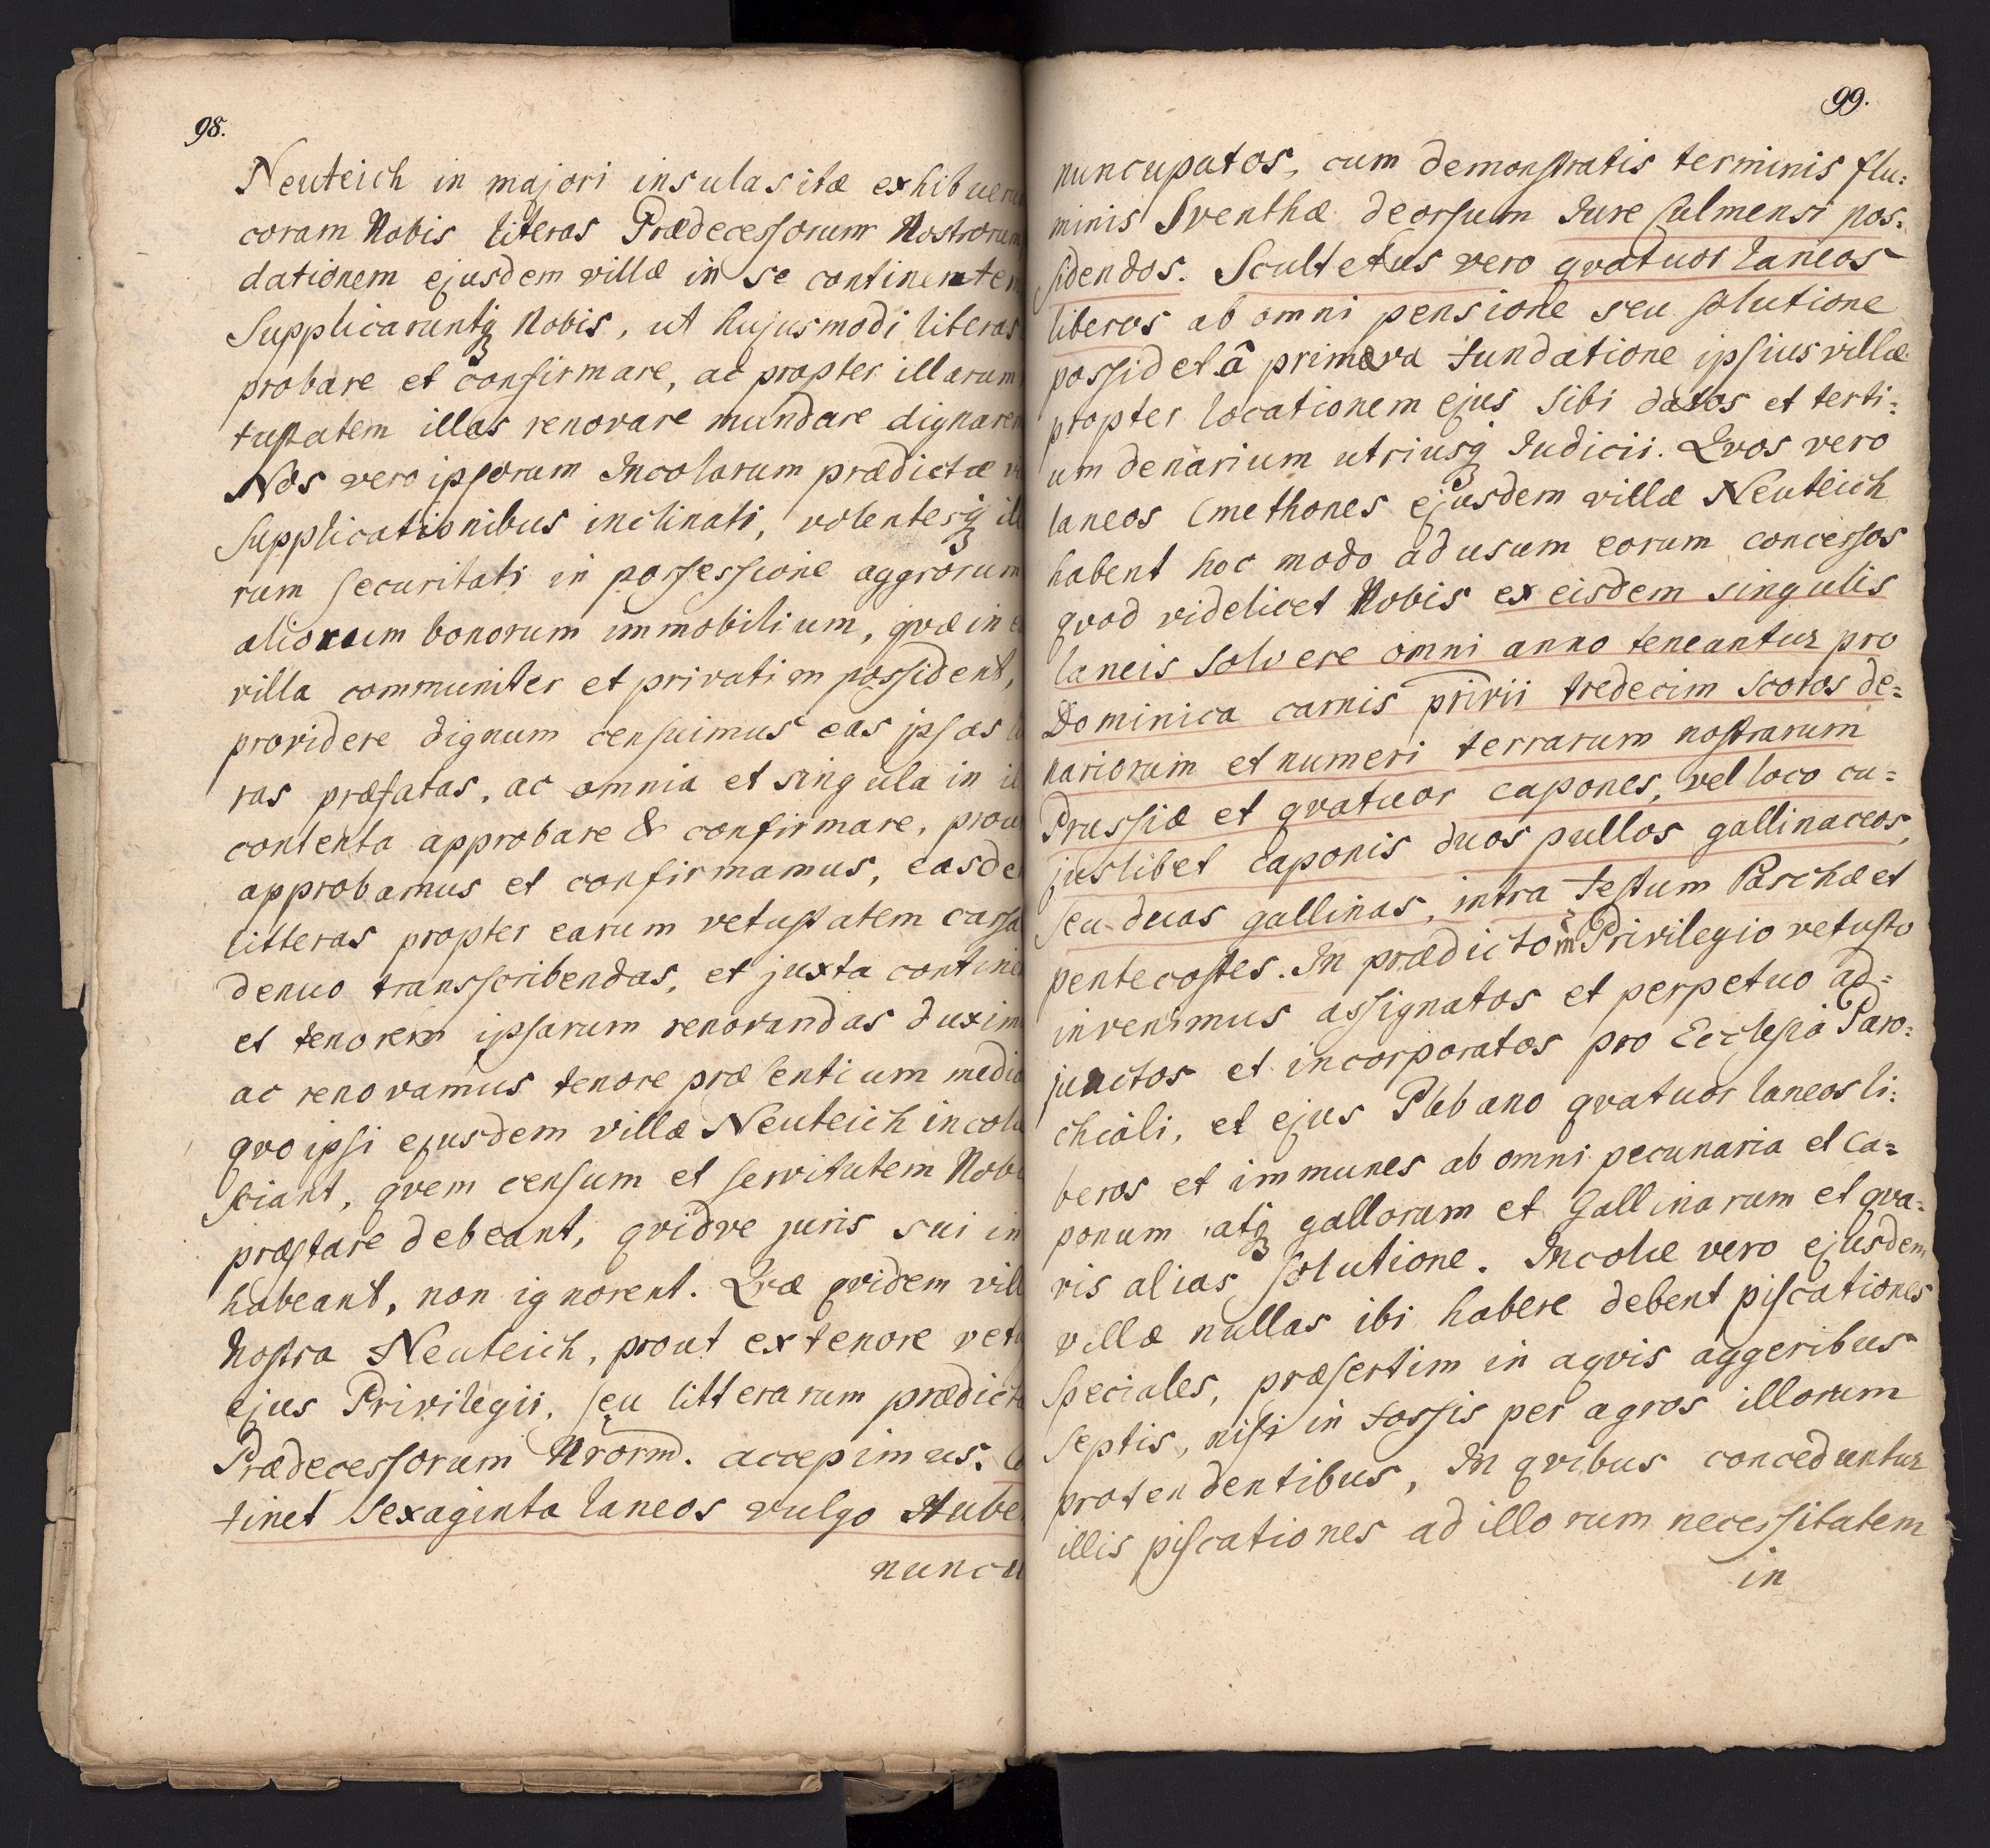 98.
Neuteich in majori insula sitæ exhibueru
coram Nobis literas Prædecessorum Nostrorum
dationem ejusdem villæ in se continentem
Supplicaruntq Nobis, ut hujusmodi literas
probare et confirmare, ac propter illarum
tustatem illas renovare mundare dignarem
Nos vero ipsorum Incolarum prædictæ v
Supplicationibus inclinati, volentesq ill
rum securitati in possessione aggrorum
aliorum bonorum immobilium, qvæ in e
villa communiter et privatim possident,
providere dignum censuimus eas ipsas li
ras præfatas, ac omnia et singula in il
contenta approbare & confirmare, prou
approbamus et confirmamus, easde
litteras propter earum vetustatem cassa
denuo transscribendas, et juxta contine
et tenorem ipsarum renovandas duxim
ac renovamus tenore præsentium medio
qvo ipsi ejusdem villæ Neuteich incolæ
sciant, qvem censum et servitutem Nobi
præstare debeant, qvidve juris sui in
habeant, non ignorent. Qvæ qvidem vill
Nostra Neuteich, prout ex tenore vetu
ejus Privilegii, seu litterarum prædicta
Prædecessorum Nrorm. accepimus. Co
tinet sexaginta laneos vulgo Huben
nuncu
99.
nuncupatos, cum demonstratis terminis flu:
minis Sventhæ deorsum Jure Culmensi pos:
sidendos. Scultetus vero qvatuor laneos
liberos ab omni pensione seu solutione
possidet â primæva fundatione ipsius villæ
propter locationem ejus sibi datos et terti:
um denarium utriusq Judicii. Qvos vero
laneos Cmethones ejusdem villæ Neuteich
habent hoc modo ad usum eorum concessos
qvod videlicet Nobis ex eisdem singulis
laneis solvere omni anno teneantur pro
Dominica carnis privii tredecim scotos de=
nariorum et numeri terrarum nostrarum
Prussiæ et qvatuor capones, vel loco cu=
juslibet caponis duos pullos gallinaceos,
seu duas gallinas, intra festum Paschæ et
pentecostes. In prædicto in Privilegio vetusto
invenimus assignatos et perpetuo ad=
junctos et incorporatos pro Ecclesia Paro:
chiali, et ejus Plebano qvatuor laneos li:
beros et immunes ab omni pecunaria et ca=
ponum atq gallorum et Gallinarum et qva:
vis alias solutione. Incolæ vero ejusdem
villæ nullas ibi habere debent piscationes
speciales, præsertim in aqvis aggeribus
septis, nisi in fossis per agros illorum
protendentibus, In qvibus conceduntur
illis piscationes ad illorum necessitatem
in